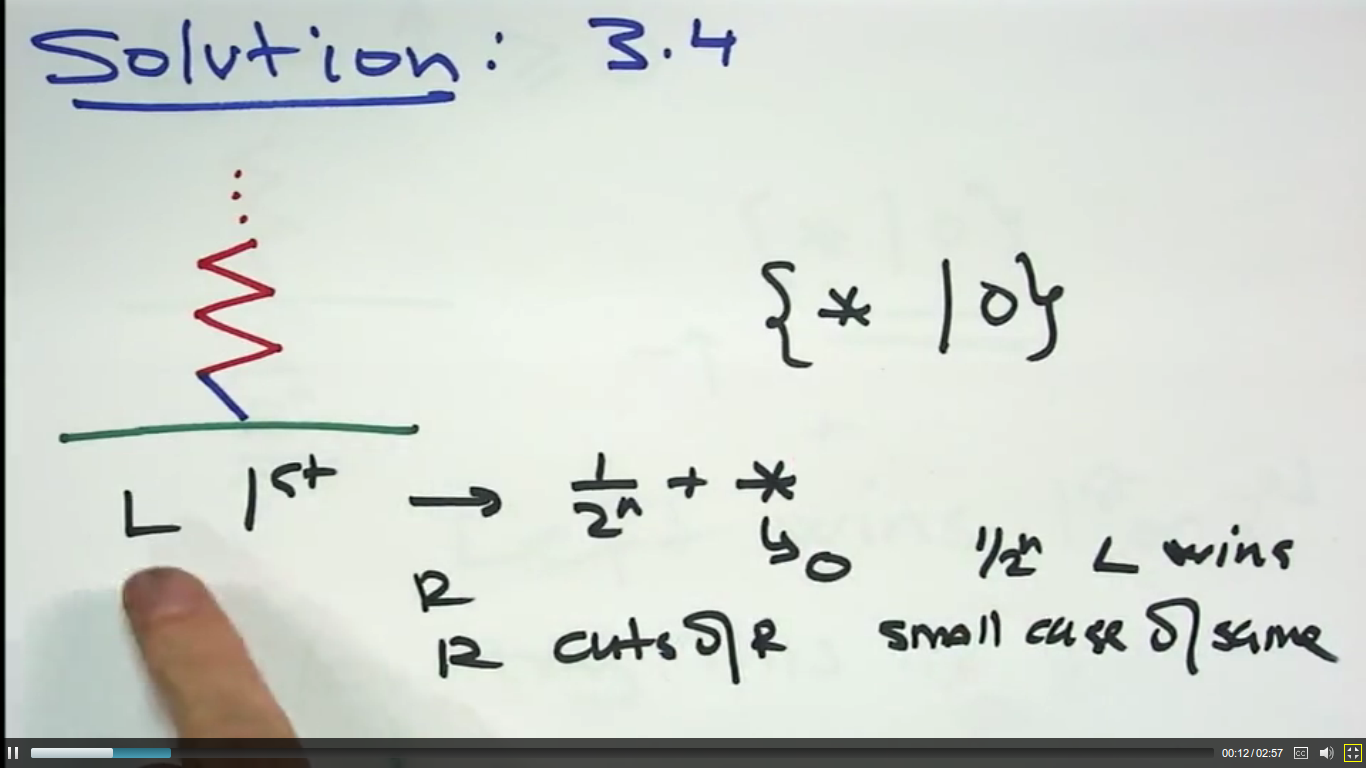 Solution: 3.4
{* | 0}
L 1st → 1/2ⁿ + *
↳ 0 1/2ⁿ L wins
R
R cuts off R small case of same
00:12/02:57
CC